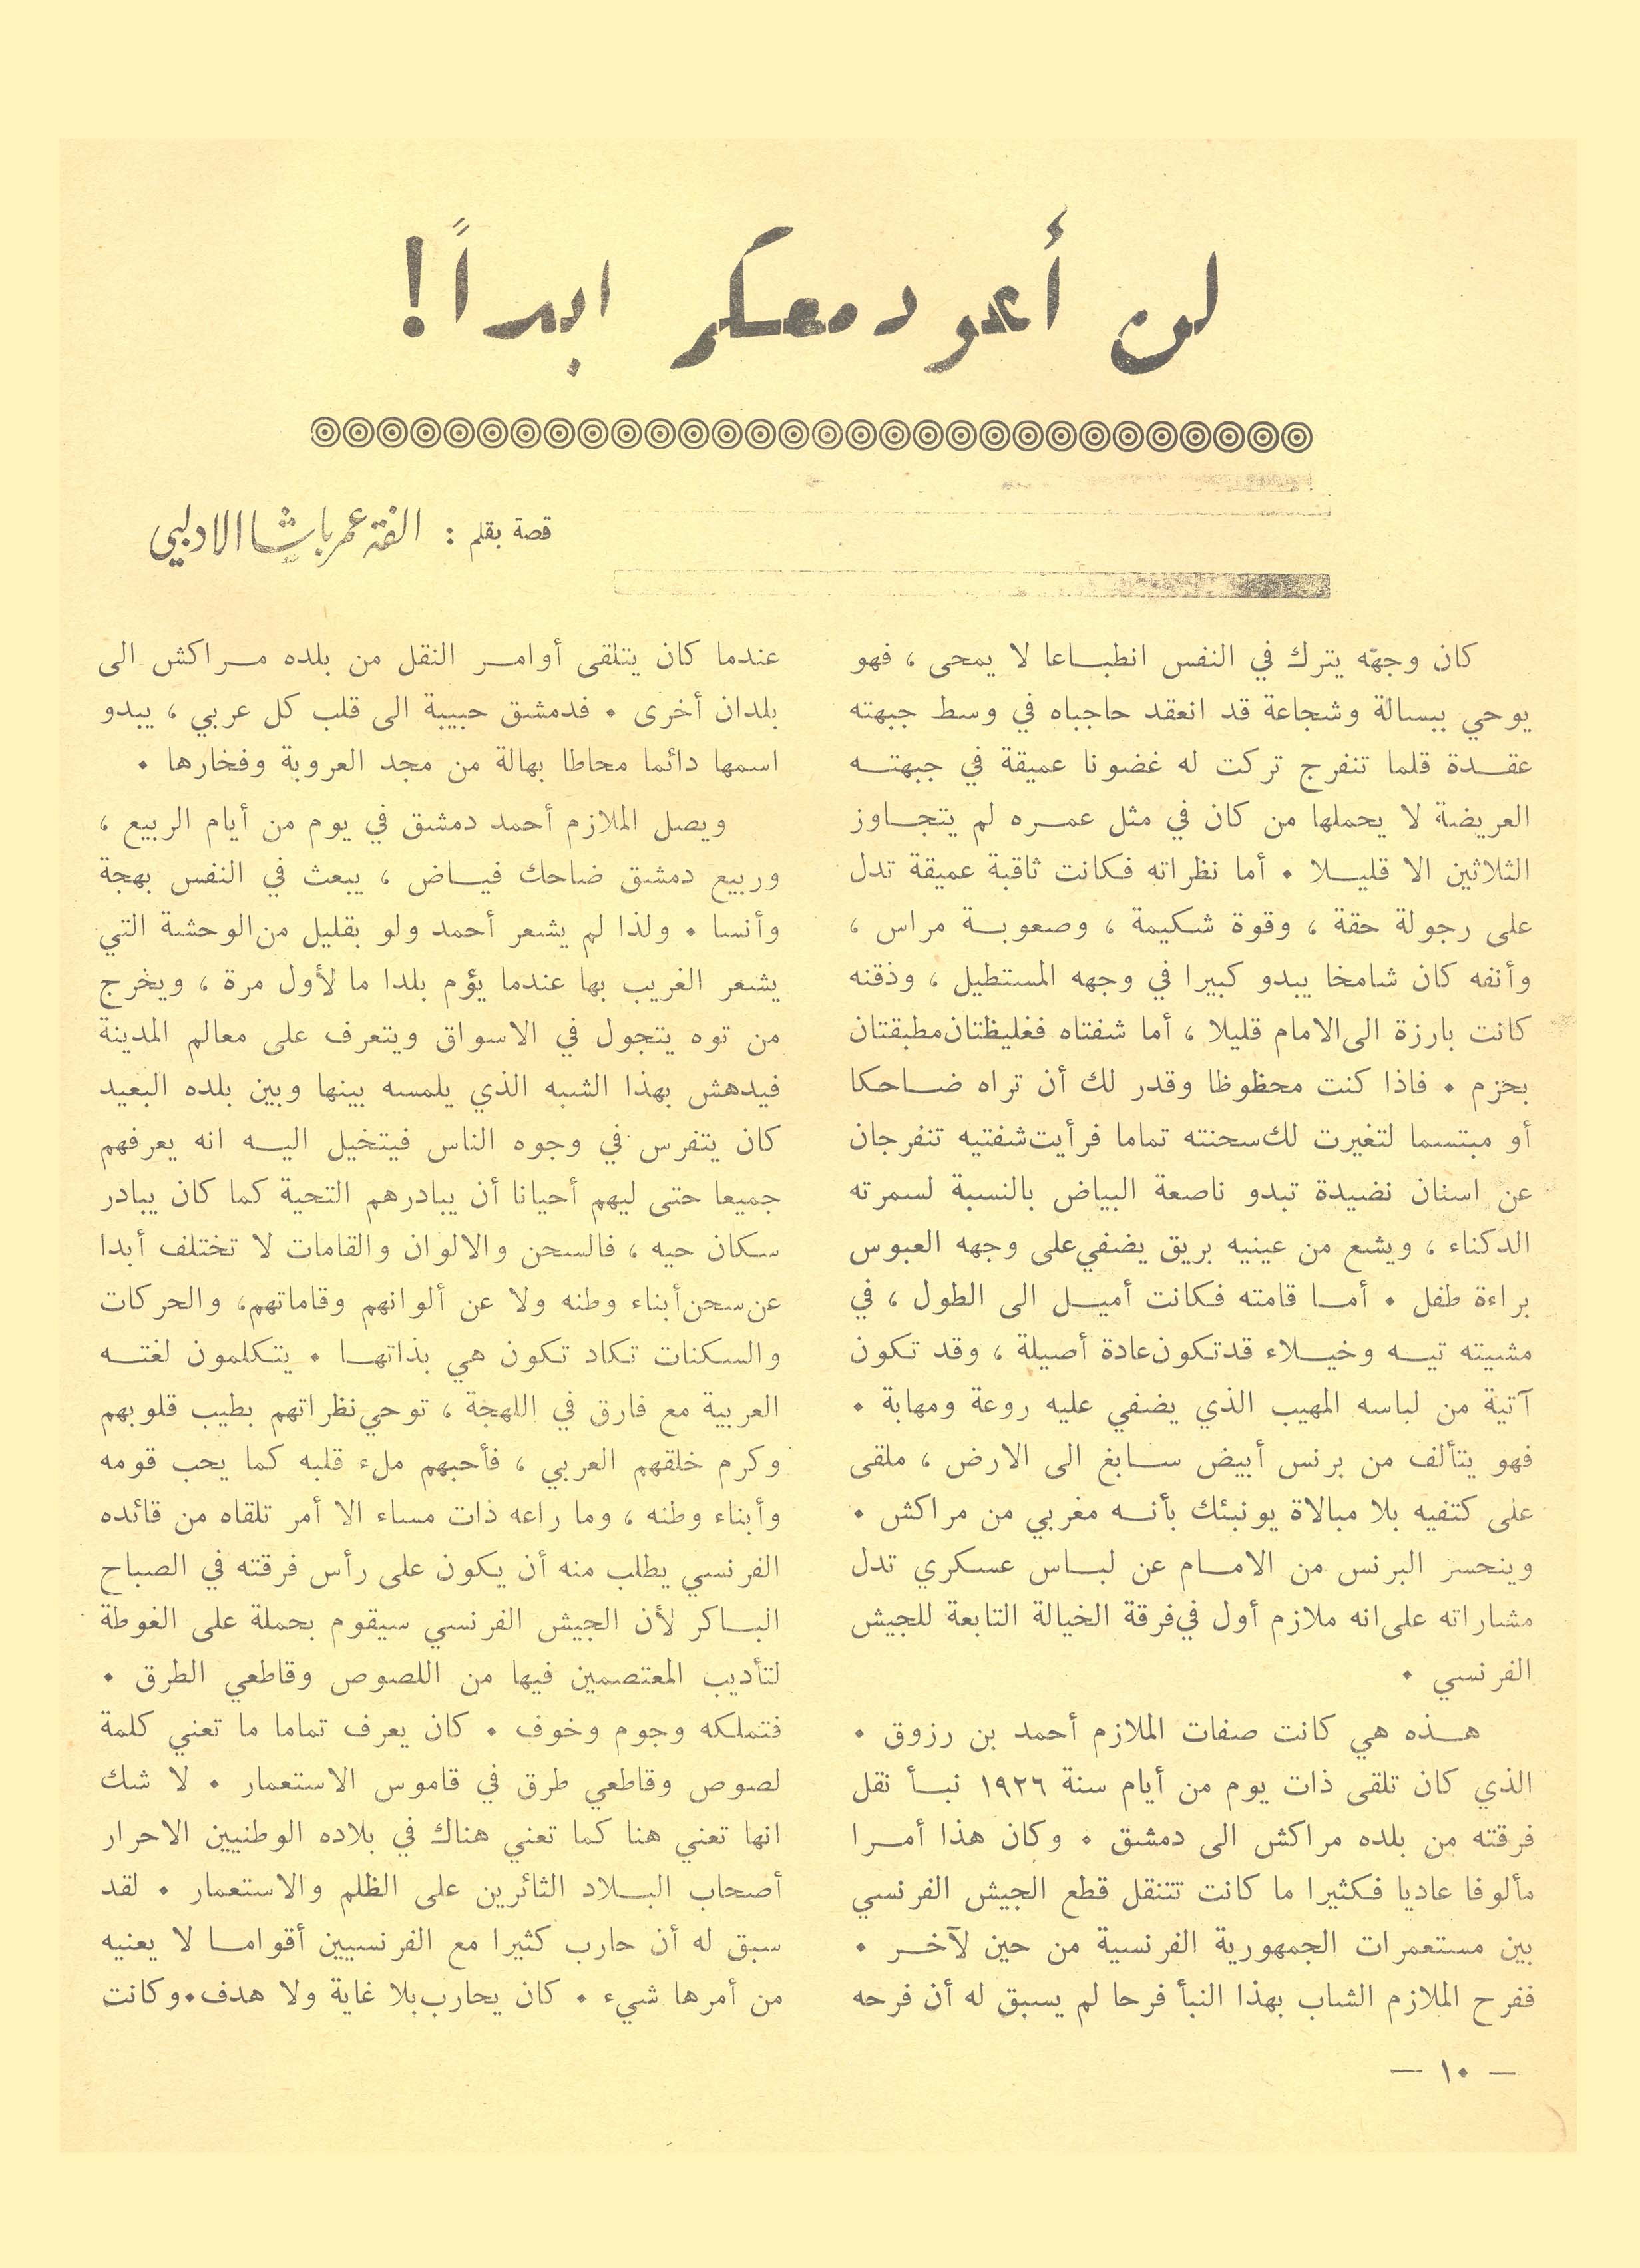 لن أعود معكم ابداً!
قصة بقلم : الفة عمر باشا الادلبي
كان وجهه يترك في النفس انطباعا لا يمحى ، فهو
يوحي ببسالة وشجاعة قد انعقد حاجباه في وسط جبهته
عقدة قلما تنفرج تركت له غضونا عميقة في جبهته
العريضة لا يحملها من كان في مثل عمره لم يتجاوز
الثلاثين الا قليلا ٠ أما نظراته فكانت ثاقبة عميقة تدل
على رجولة حقة ، وقوة شكيمة ، وصعوبة مراس ،
وأنفه كان شامخا يبدو كبيرا في وجهه المستطيل ، وذقنه
كانت بارزة الى الامام قليلا ، أما شفتاه فغليظتان مطبقتان
بحزم ٠ فاذا كنت محظوظا وقدر لك أن تراه ضاحكا
أو مبتسما لتغيرت لك سحنته تماما فرأيت شفتيه تنفرجان
عن اسنان نضيدة تبدو ناصعة البياض بالنسبة لسمرته
الدكناء ، ويشع من عينيه بريق يضفي على وجهه العبوس
براءة طفل ٠ أما قامته فكانت أميل الى الطول ، في
مشيته تيه وخيلاء قد تكون عادة أصيلة ، وقد تكون
آتية من لباسه المهيب الذي يضفي عليه روعة ومهابة ٠
فهو يتألف من برنس أبيض سابغ الى الارض ، ملقى
على كتفيه بلا مبالاة يونبئك بأنه مغربي من مراكش ٠
وينحسر البرنس من الامام عن لباس عسكري تدل
مشاراته على انه ملازم أول في فرقة الخيالة التابعة للجيش
الفرنسي ٠
هذه هي كانت صفات الملازم أحمد بن رزوق ٠
الذي كان تلقى ذات يوم من أيام سنة ١٩٢٦ نبأ نقل
فرقته من بلده مراكش الى دمشق ٠ وكان هذا أمرا
مألوفا عاديا فكثيرا ما كانت تتنقل قطع الجيش الفرنسي
بين مستعمرات الجمهورية الفرنسية من حين لآخر ٠
ففرح الملازم الشاب بهذا النبأ فرحا لم يسبق له أن فرحه
عندما كان يتلقى أوامر النقل من بلده مراكش الى
بلدان أخرى ٠ فدمشق حبيبة الى قلب كل عربي ، يبدو
اسمها دائما محاطا بهالة من مجد العروبة وفخارها ٠
ويصل الملازم أحمد دمشق في يوم من أيام الربيع ،
وربيع دمشق ضاحك فياض ، يبعث في النفس بهجة
وأنسا ٠ ولذا لم يشعر أحمد ولو بقليل من الوحشة التي
يشعر الغريب بها عندما يؤم بلدا ما لأول مرة ، ويخرج
من توه يتجول في الاسواق ويتعرف على معالم المدينة
فيدهش بهذا الشبه الذي يلمسه بينها وبين بلده البعيد
كان يتفرس في وجوه الناس فيتخيل اليه انه يعرفهم
جميعا حتى ليهم أحيانا أن يبادرهم التحية كما كان يبادر
سكان حيه ، فالسحن والالوان والقامات لا تختلف أبدا
عن سحن أبناء وطنه ولا عن ألوانهم وقاماتهم، والحركات
والسكنات تكاد تكون هي بذاتها ٠ يتكلمون لغته
العربية مع فارق في اللهجة ، توحي نظراتهم بطيب قلوبهم
وكرم خلقهم العربي ، فأحبهم ملء قلبه كما يحب قومه
وأبناء وطنه ، وما راعه ذات مساء الا أمر تلقاه من قائده
الفرنسي يطلب منه أن يكون على رأس فرقته في الصباح
الباكر لأن الجيش الفرنسي سيقوم بحملة على الغوطة
لتأديب المعتصمين فيها من اللصوص وقاطعي الطرق ٠
فتملكه وجوم وخوف ٠ كان يعرف تماما ما تعني كلمة
لصوص وقاطعي طرق في قاموس الاستعمار ٠ لا شك
انها تعني هنا كما تعني هناك في بلاده الوطنيين الاحرار
أصحاب البلاد الثائرين على الظلم والاستعمار ٠ لقد
سبق له أن حارب كثيرا مع الفرنسيين أقواما لا يعنيه
من أمرها شيء ٠ كان يحارب بلا غاية ولا هدف٠ وكانت
— ١٠ —